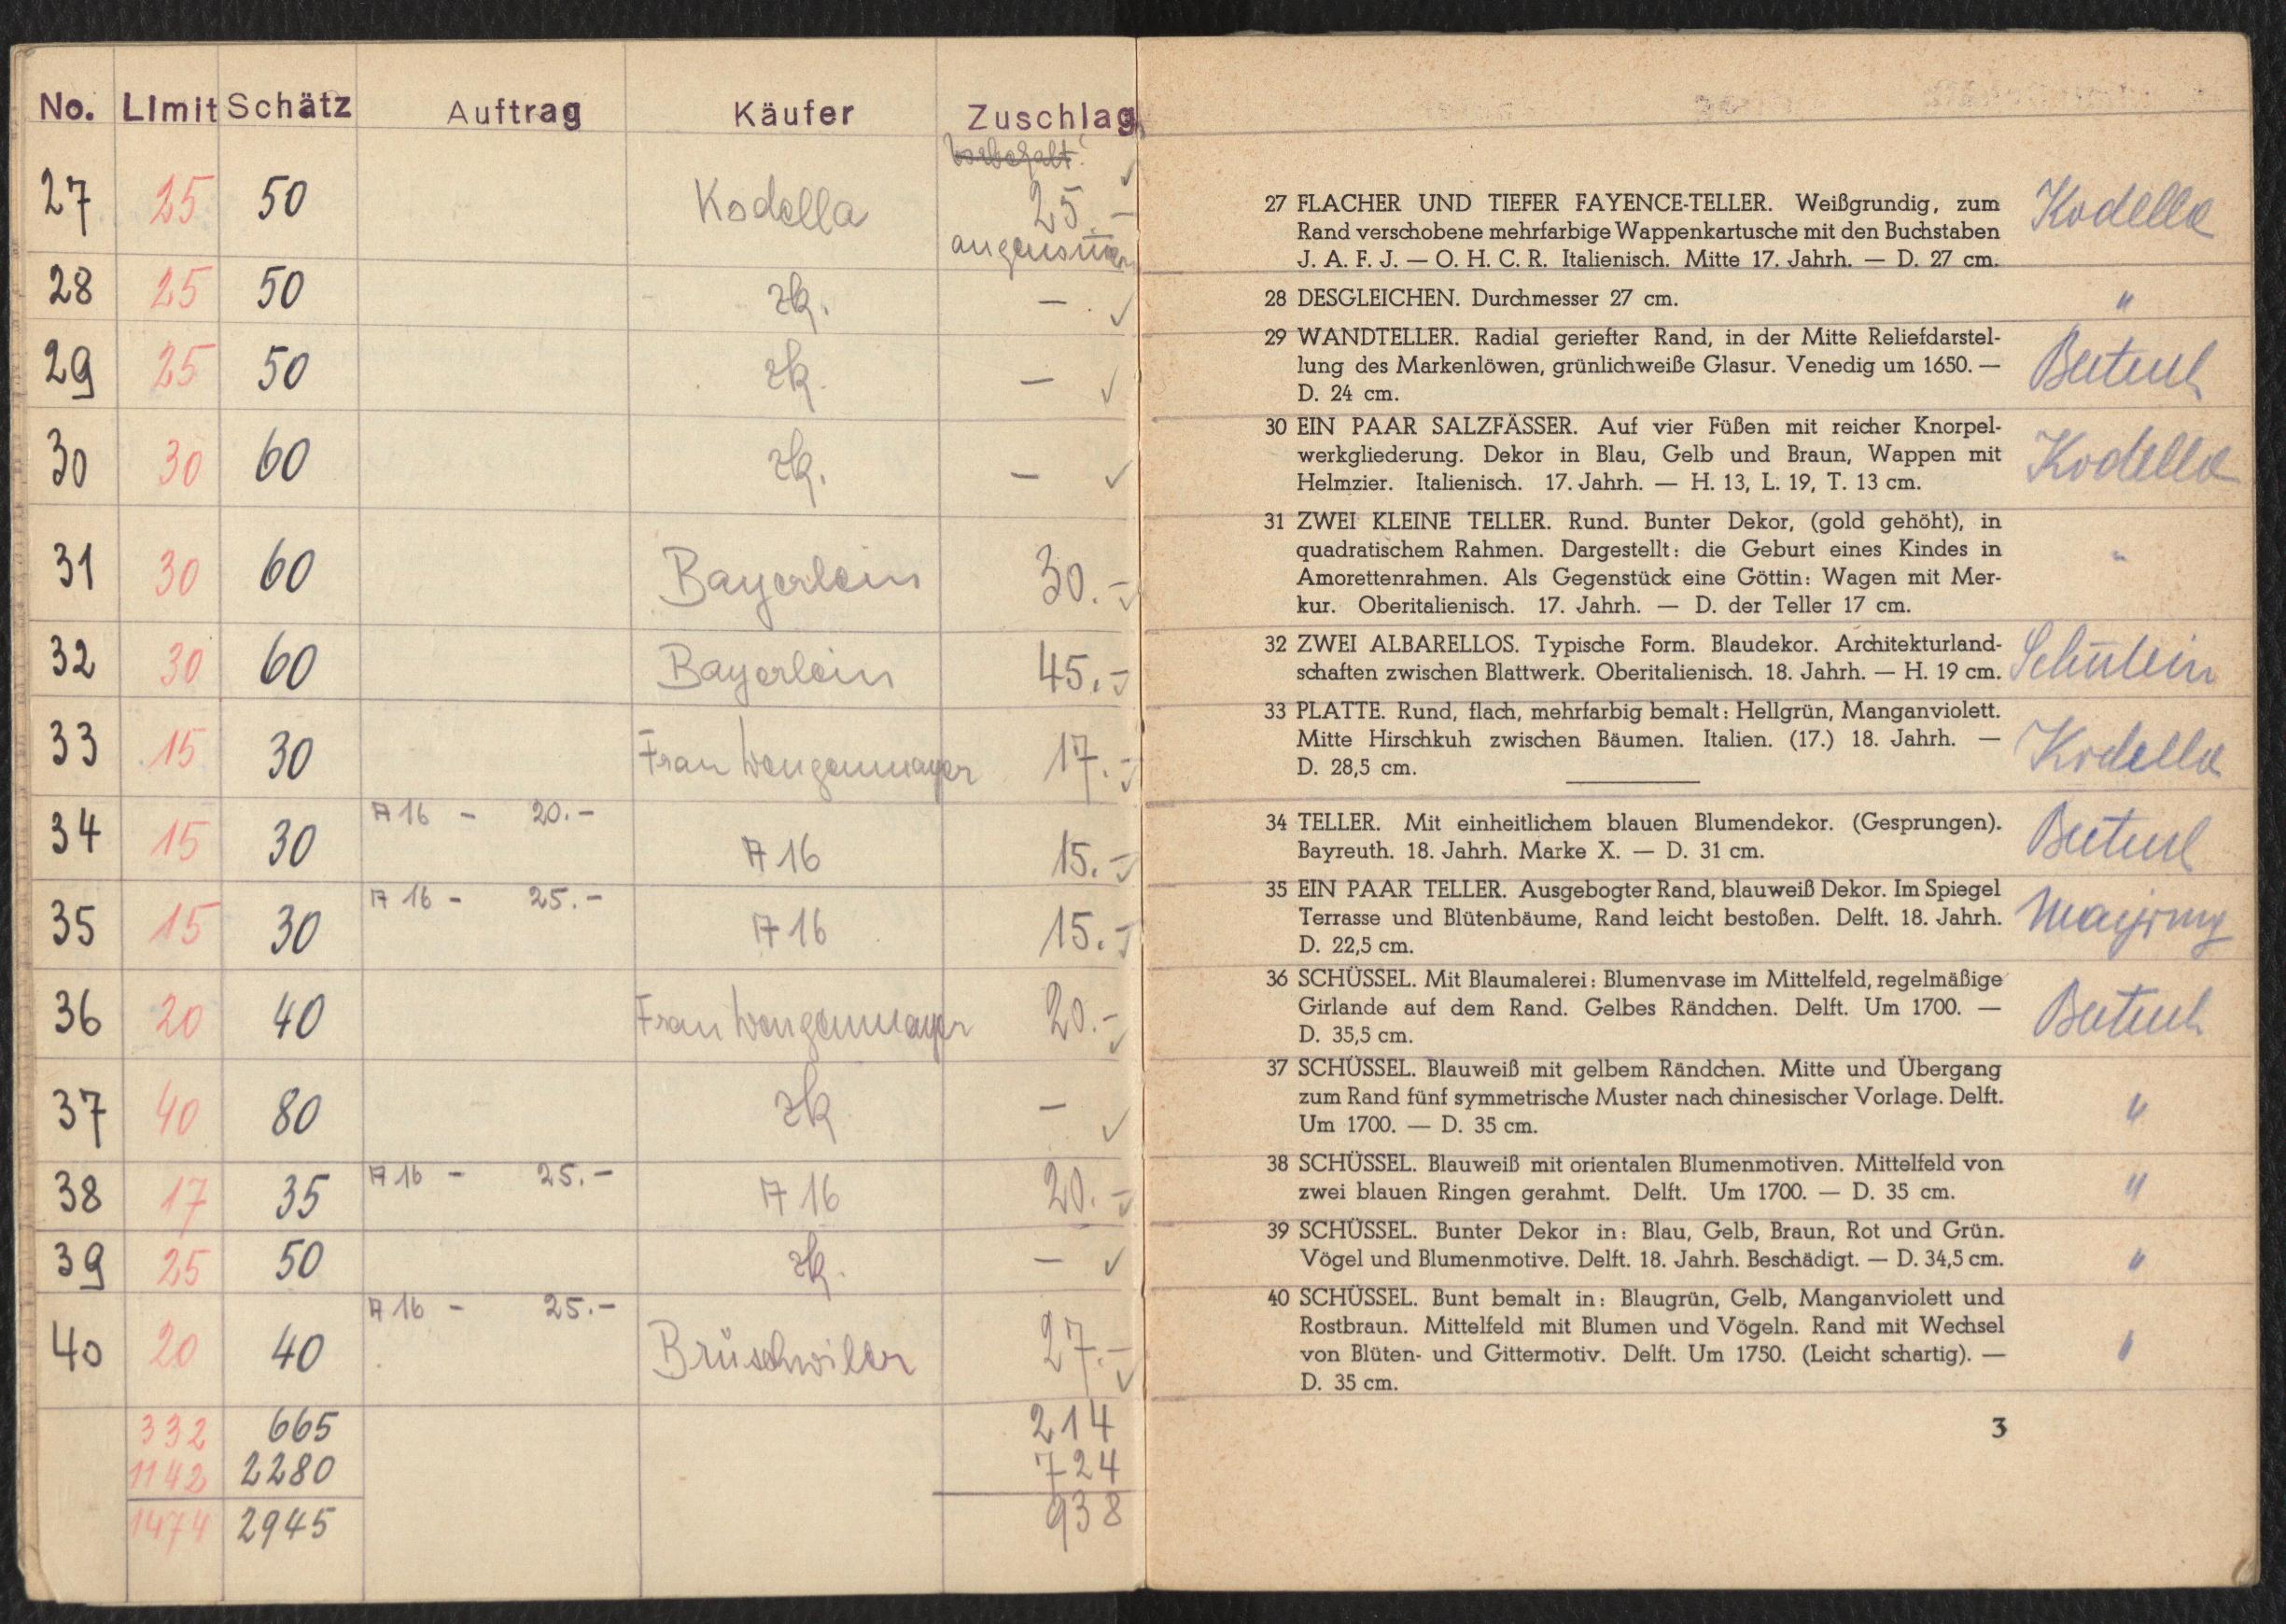 No. Limit Schätz Auftrag Käufer Zuschlag
Vorbehalt!
27 25 50 Kodella 25.-
angenommen
28 25 50 zk. -
29 25 50 zk. -
30 30 60 zk. -
31 30 60 Bayerlein 30.-
32 30 60 Bayerlein 45.-
33 15 30 Frau Wengenmayer 17.-
A 16 - 20.-
34 15 30 A 16 15.-
A 16 - 25.-
35 15 30 A 16 15.-
36 20 40 Frau Wengenmayer 20.-
37 40 80 zk -
A 16 - 25.-
38 17 35 A 16 20.-
39 25 50 zk. -
A 16 - 25.-
40 20 40 Brüschwiler 27.-
332 665 214
1142 2280 724
1474 2945 938
27 FLACHER UND TIEFER FAYENCE-TELLER. Weißgrundig, zum
Rand verschobene mehrfarbige Wappenkartusche mit den Buchstaben
J. A. F. J. — O. H. C. R. Italienisch. Mitte 17. Jahrh. — D. 27 cm.
Kodella
28 DESGLEICHEN. Durchmesser 27 cm.
"
29 WANDTELLER. Radial geriefter Rand, in der Mitte Reliefdarstel-
lung des Markenlöwen, grünlichweiße Glasur. Venedig um 1650. —
D. 24 cm.
30 EIN PAAR SALZFÄSSER. Auf vier Füßen mit reicher Knorpel-
werkgliederung. Dekor in Blau, Gelb und Braun, Wappen mit
Helmzier. Italienisch. 17. Jahrh. — H. 13, L. 19, T. 13 cm.
Kodella
31 ZWEI KLEINE TELLER. Rund. Bunter Dekor, (gold gehöht), in
quadratischem Rahmen. Dargestellt: die Geburt eines Kindes in
Amorettenrahmen. Als Gegenstück eine Göttin: Wagen mit Mer-
kur. Oberitalienisch. 17. Jahrh. — D. der Teller 17 cm.
"
32 ZWEI ALBARELLOS. Typische Form. Blaudekor. Architekturland-
schaften zwischen Blattwerk. Oberitalienisch. 18. Jahrh. — H. 19 cm.
Schülein
33 PLATTE. Rund, flach, mehrfarbig bemalt: Hellgrün, Manganviolett.
Mitte Hirschkuh zwischen Bäumen. Italien. (17.) 18. Jahrh. —
D. 28,5 cm.
Kodella
34 TELLER. Mit einheitlichem blauen Blumendekor. (Gesprungen).
Bayreuth. 18. Jahrh. Marke X. — D. 31 cm.
35 EIN PAAR TELLER. Ausgebogter Rand, blauweiß Dekor. Im Spiegel
Terrasse und Blütenbäume, Rand leicht bestoßen. Delft. 18. Jahrh.
D. 22,5 cm.
36 SCHÜSSEL. Mit Blaumalerei: Blumenvase im Mittelfeld, regelmäßige
Girlande auf dem Rand. Gelbes Rändchen. Delft. Um 1700. —
D. 35,5 cm.
37 SCHÜSSEL. Blauweiß mit gelbem Rändchen. Mitte und Übergang
zum Rand fünf symmetrische Muster nach chinesischer Vorlage. Delft.
Um 1700. — D. 35 cm.
"
38 SCHÜSSEL. Blauweiß mit orientalen Blumenmotiven. Mittelfeld von
zwei blauen Ringen gerahmt. Delft. Um 1700. — D. 35 cm.
"
39 SCHÜSSEL. Bunter Dekor in: Blau, Gelb, Braun, Rot und Grün.
Vögel und Blumenmotive. Delft. 18. Jahrh. Beschädigt. — D. 34,5 cm.
"
40 SCHÜSSEL. Bunt bemalt in: Blaugrün, Gelb, Manganviolett und
Rostbraun. Mittelfeld mit Blumen und Vögeln. Rand mit Wechsel
von Blüten- und Gittermotiv. Delft. Um 1750. (Leicht schartig). —
D. 35 cm.
"
3